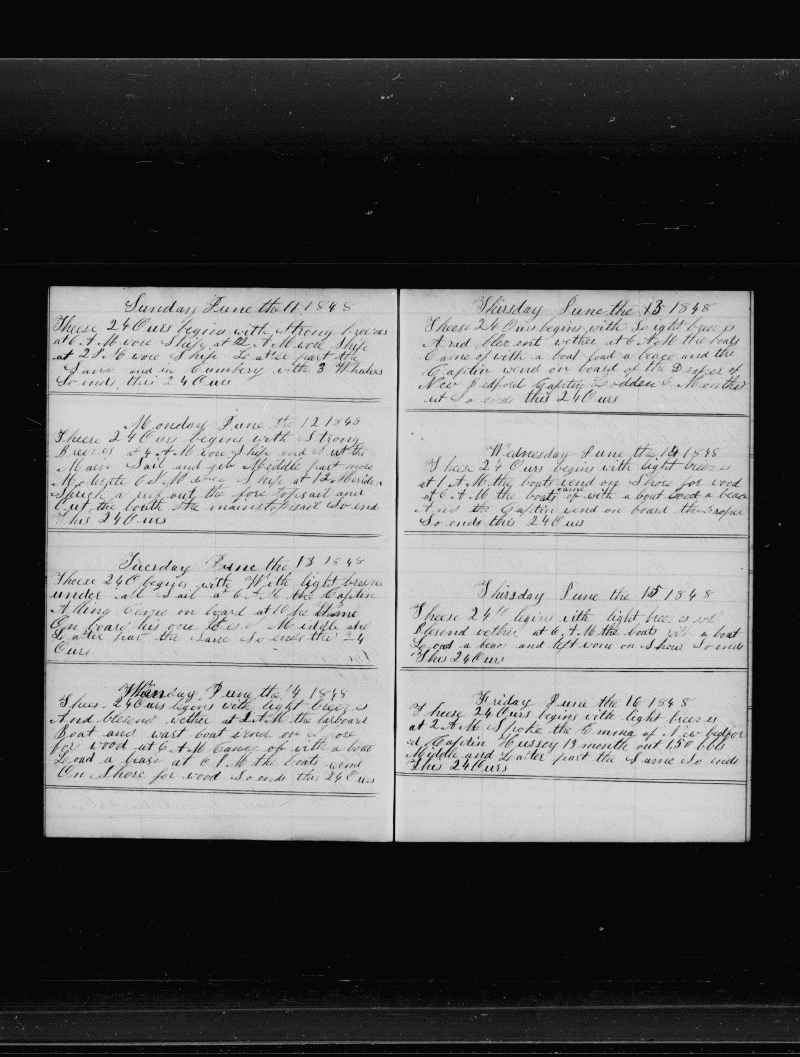 Sunday June the 11 1848
Theese 24 Ours begins with strong breezes
at 6 A M wore Ship at 12 A M wore Ship
at 2 P M wore Ship Later part the
Same and in Cumbery with 3 Whales
So ends this 24 Ours
Monday June the 12 1848
Theese 24 Ours begins with Strong
Breezes at 4 A M wore Ship and
Main Sail and Middle part more
6 P M wore Ship at 12 Meridian
a reef out the fore topsail and
Cut the mainstopsail So end
This 24 Ours
Tuesday June the 13 1848
Theese 24 O begins with With light breezes
under all Sail at 6 A M the Captin
Alling Came on board at 10 he
On board his one Middle and
Later part the Same So ends the 24
Ours
Thursday June the 14 1848
Theese 24 Ours begins with light breezes
And blesend wether at 2 A M the larboard
Boat and wast boat wend on Shore
for wood at 6 A M Came of with a boat
Load a beace at 6 P M the boats wend
On Shore for wood So ends this 24 Ours
Thirsday June the 13 1848
Theese 24 Ours begins with Light breezes
And blesent wether at 6 A M the boats
Came of with a boat load a beace and the
Captin wend on board of the Draper of
New Bedford Captin 6 Monthes
ut So ends this 24 Ours
Wednesday June the 14 1848
Theese 24 Ours begins with light breezes
at 1 A M the boats wend on Shore for wood
at 6 A M the boats came of with a boat Load a beace
And the Captin wend on board the Draper
So ends this 24 Ours
Thirsday June the 15 1848
Theese 24 begins with light breezes
blesend wether at 6 A M the boats with a boat
Load a beace and left wone on Shour So ends
This 24 Ours
Friday June the 16 1848
Theese 24 Ours begins with light breezes
at 2 A M Spoke the Emma of New bedfor
d Captin Hussey 13 month out 150 bbls
Middle and Later part the Same So ends
This 24 Ours